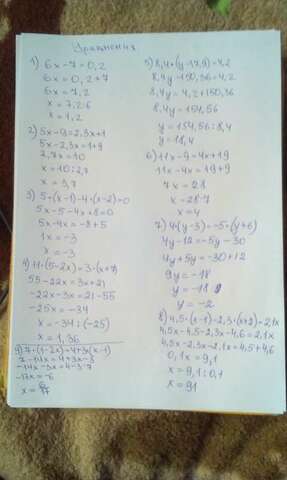 Уравнения
1) 6x-7=0,2
6x=0,2+7
6x=7,2
x=7,2:6
x=1,2
2) 5x-9=2,3x+1
5x-2,3x=1+9
2,7x=10
x=10:2,7
x=3,7
3) 5·(x-1)-4·(x-2)=0
5x-5-4x+8=0
5x-4x=-8+5
1x=-3
x=-3
4) 11·(5-2x)=3·(x+7)
55-22x=3x+21
-22x-3x=21-55
-25x=-34
x=-34:(-25)
x=1,36
9) 7·(1-2x)=4+3(x-1)
7-14x=4+3x-3
-14x-3x=4-3-7
-17x=-6
5) 8,4·(y-17,9)=4,2
8,4y-150,36=4,2
8,4y=4,2+150,36
8,4y=154,56
y=154,56:8,4
y=18,4
6) 11x-9=4x+19
11x-4x=19+9
7x=28
x=28:7
x=4
7) 4(y-3)=-5·(y+6)
4y-12=-5y-30
4y+5y=-30+12
9y=-18
y=-18:9
y=-2
8) 4,5·(x-1)-2,3·(x+2)=2,1x
4,5x-4,5-2,3x-4,6=2,1x
4,5x-2,3x-2,1x=4,5+4,6
0,1x=9,1
x=9,1:0,1
x=91